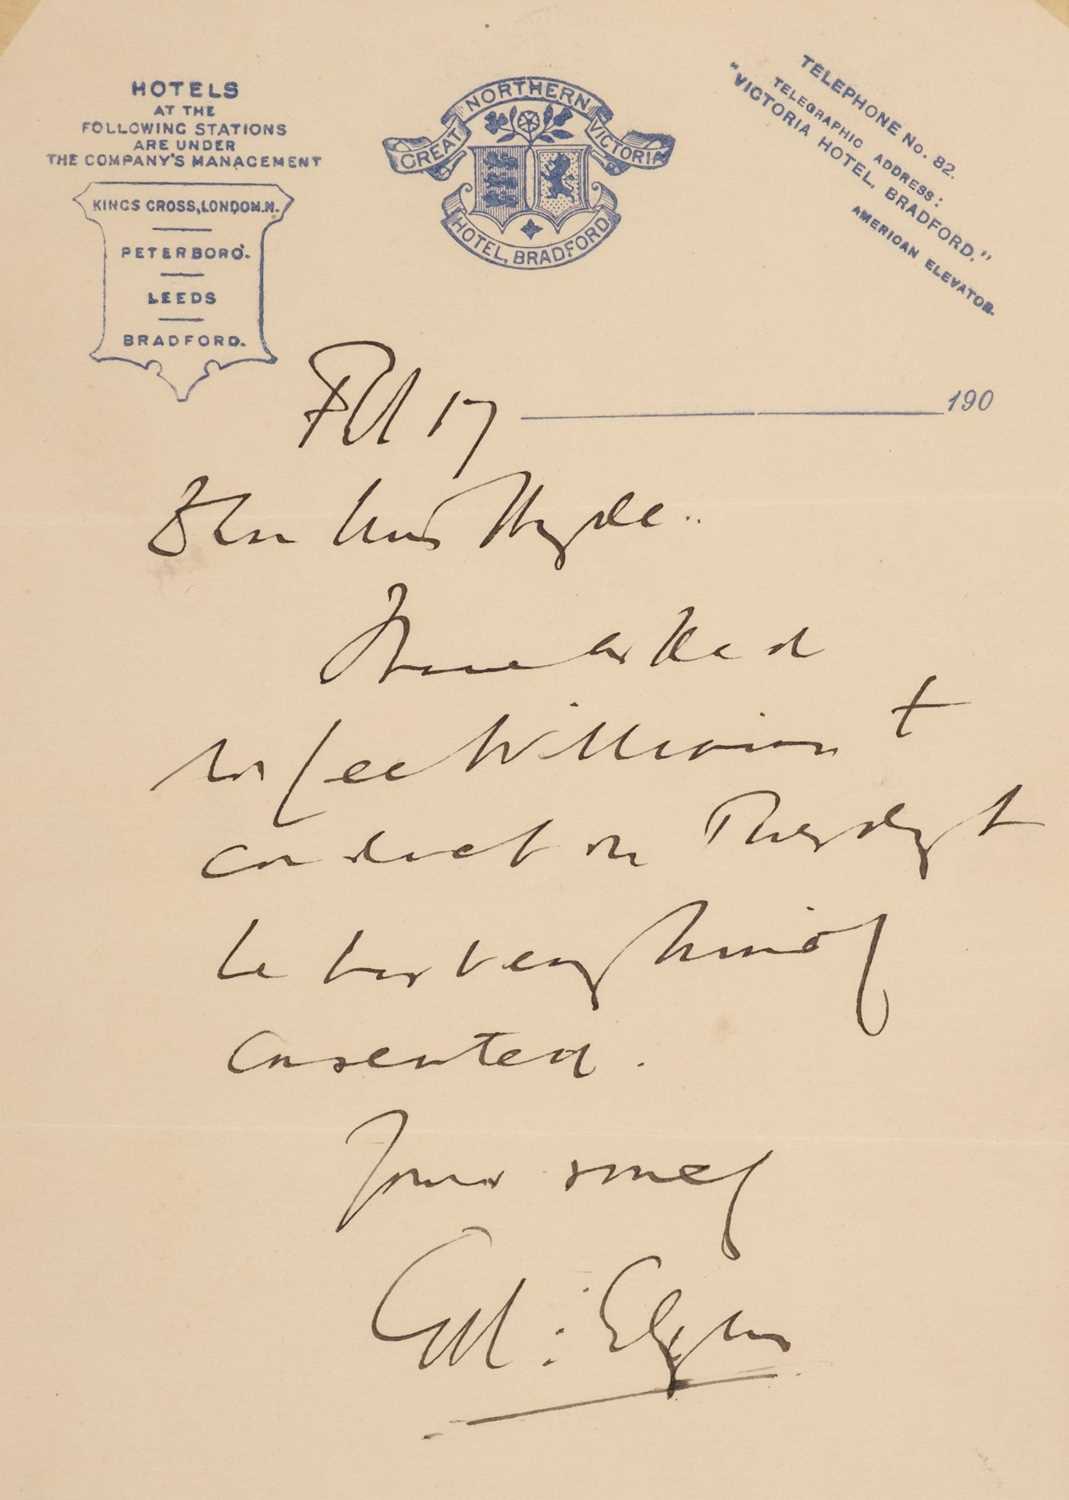 HOTELS
AT THE
FOLLOWING STATIONS
ARE UNDER
THE COMPANY'S MANAGEMENT
KINGS CROSS, LONDON. N.
PETERBORO'.
LEEDS
BRADFORD.
GREAT NORTHERN VICTORIA
HOTEL, BRADFORD
TELEPHONE No. 82.
TELEGRAPHIC ADDRESS:
"VICTORIA HOTEL, BRADFORD."
AMERICAN ELEVATOR.
Feb 17 190
Dear Miss Hyde.
I have asked
Williams to
conduct on Thursday &
he has very kindly
consented.
Yours sincely
Ed: Elgar